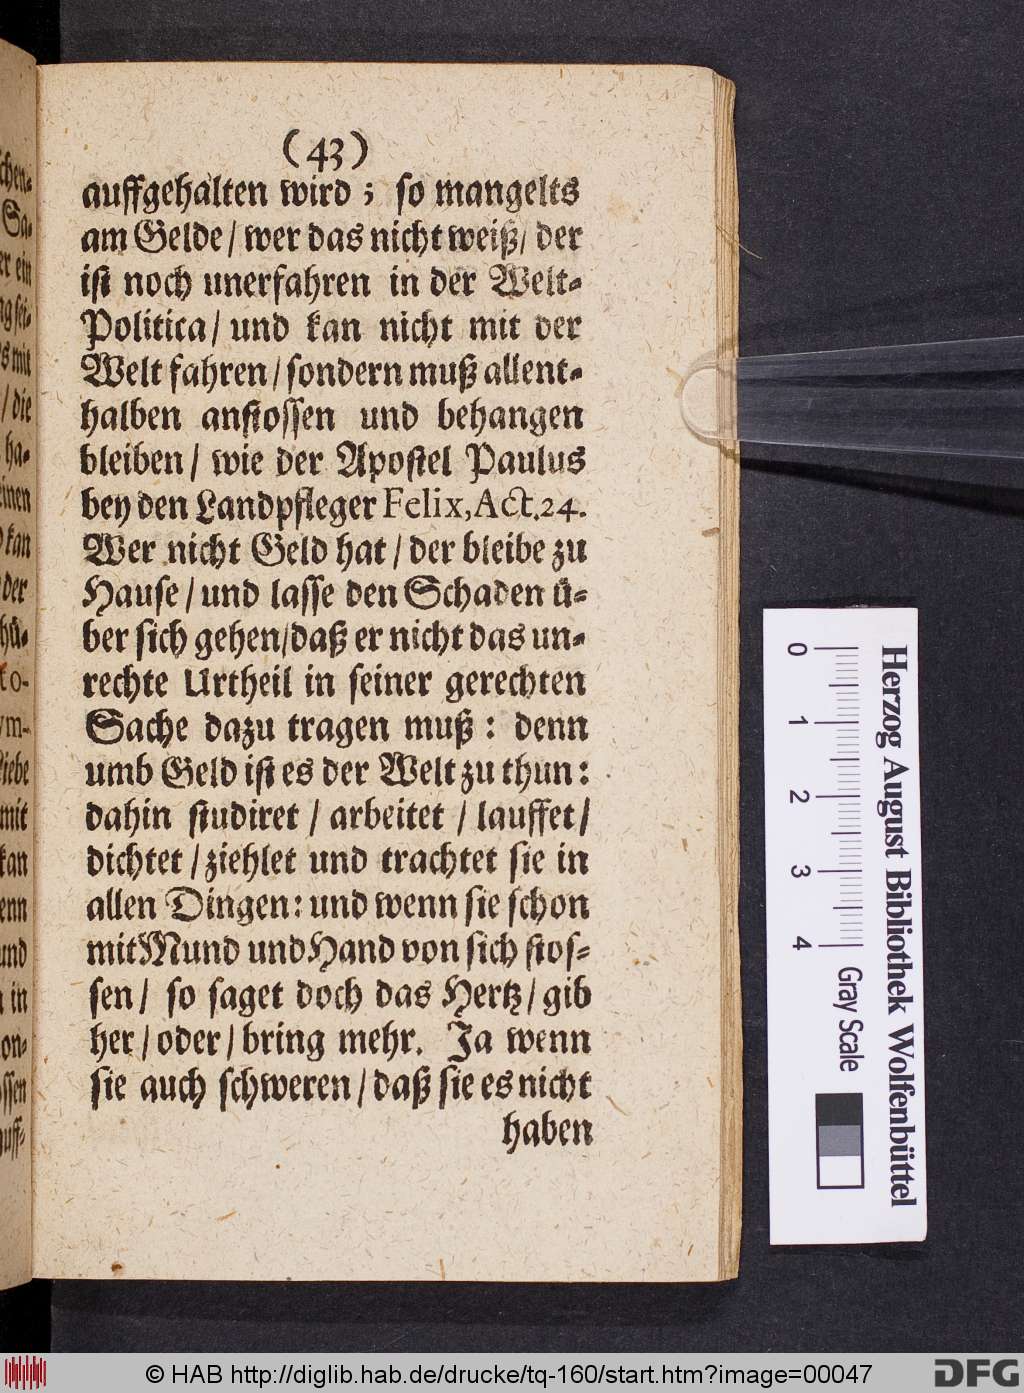 (43)
auffgehalten wird; so mangelts
am Gelde/ wer das nicht weiß/ der
ist noch unerfahren in der Welt-
Politica/ und kan nicht mit der
Welt fahren/ sondern muß allent-
halben anstossen und behangen
bleiben/ wie der Apostel Paulus
bey den Landpfleger Felix, Act. 24.
Wer nicht Geld hat/ der bleibe zu
Hause/ und lasse den Schaden ü-
ber sich gehen/ daß er nicht das un-
rechte Urtheil in seiner gerechten
Sache dazu tragen muß: denn
umb Geld ist es der Welt zu thun:
dahin studiret/ arbeitet/ lauffet/
dichtet/ ziehlet und trachtet sie in
allen Dingen: und wenn sie schon
mit Mund und Hand von sich stos-
sen/ so saget doch das Hertz/ gib
her/ oder/ bring mehr. Ja wenn
sie auch schweren/ daß sie es nicht
haben
chen-
Sa-
er ein
ng sei-
s mit
/ die
ha-
einen
kan
der
hü-
to-
ym-
liebe
mit
kan
enn
und
in
on-
ssen
auff-
0 1 2 3 4
Gray Scale
Herzog August Bibliothek Wolfenbüttel
© HAB http://diglib.hab.de/drucke/tq-160/start.htm?image=00047
DFG